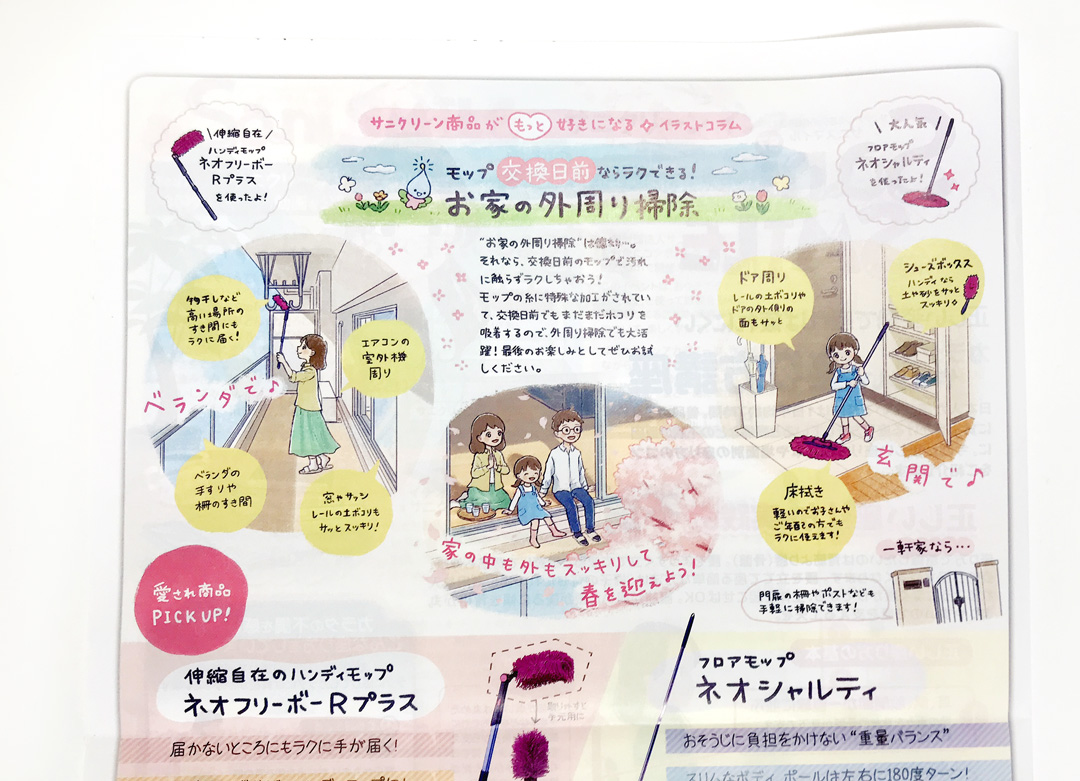 サニクリーン商品が もっと 好きになる イラストコラム
伸縮自在
ハンディモップ
ネオフリーボー
Rプラス
を使ったよ!
モップ 交換日前ならラクできる!
お家の外周り掃除
大人気
フロアモップ
ネオシャルティ
を使ったよ!
"お家の外周り掃除"は億劫…。
それなら、交換日前のモップで汚れ
に触らずラクしちゃおう!
モップの糸に特殊な加工がされてい
て、交換日前でもまだまだホコリを
吸着するので、外周り掃除でも大活
躍!最後のお楽しみとしてぜひお試
しください。
物干しなど
高い場所の
すき間にも
ラクに届く!
エアコンの
室外機
周り
ベランダで♪
ベランダの
手すりや
柵のすき間
窓やサッシ
レールの土ボコリも
サッとスッキリ!
ドア周り
レールの土ボコリや
ドアの外側の
面もサッと
シューズボックス
ハンディなら
土や砂をサッと
スッキリ
玄関で♪
床拭き
軽いのでお子さんや
ご年配の方でも
ラクに使えます!
家の中も外もスッキリして
春を迎えよう!
一軒家なら…
門扉の柵やポストなども
手軽に掃除できます!
愛され商品
PICK UP!
伸縮自在のハンディモップ
ネオフリーボーRプラス
届かないところにもラクに手が届く!
取りはずすと
手元用に
フロアモップ
ネオシャルティ
おそうじに負担をかけない"重量バランス"
スリムなボディ、ポールは左右に180度ターン!